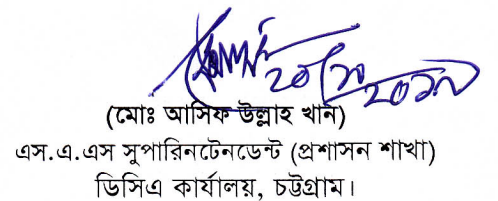 (মোঃ আসিফ উল্লাহ খান)
এস.এ.এস সুপারিনটেনডেন্ট (প্রশাসন শাখা)
ডিসিএ কার্যালয়, চট্টগ্রাম।